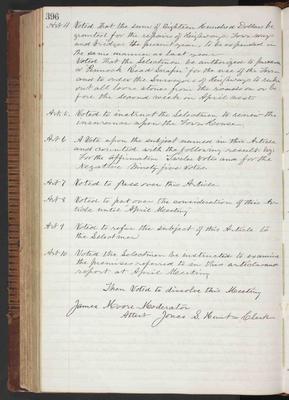 396
Art 4 Voted that the sum of Eighteen Hundred Dollars be
granted for the repairs of Highways Town ways
and Bridges the present year, to be expended in
the same manner as last year.
Voted that the Selectmen be authorized to purchase
a Pennock Road Scraper for the use of the Town
and to order the Surveyors of Highways to rake
out all loose stones from the roads on or be
fore the second week in April next
Art 5. Voted to instruct the Selectmen to renew the
insurance upon the Town House
Art 6 A Vote upon the subject named in this Article
and counted with the following result viz:
For the affirmative Twelve Votes and for the
Negative Ninety five Votes
Art 7 Voted to pass over this Article
Art 8 Voted to put over the consideration of this Ar
ticle until April Meeting
Art 9 Voted to refer the subject of this Article to
the Selectmen
Art 10 Voted the Selectmen be instructed to examine
the premises referred to in this article and
report at April Meeting
Then Voted to dissolve this Meeting
James Moore Moderator
Attest Jonas S. Hunt Clerk